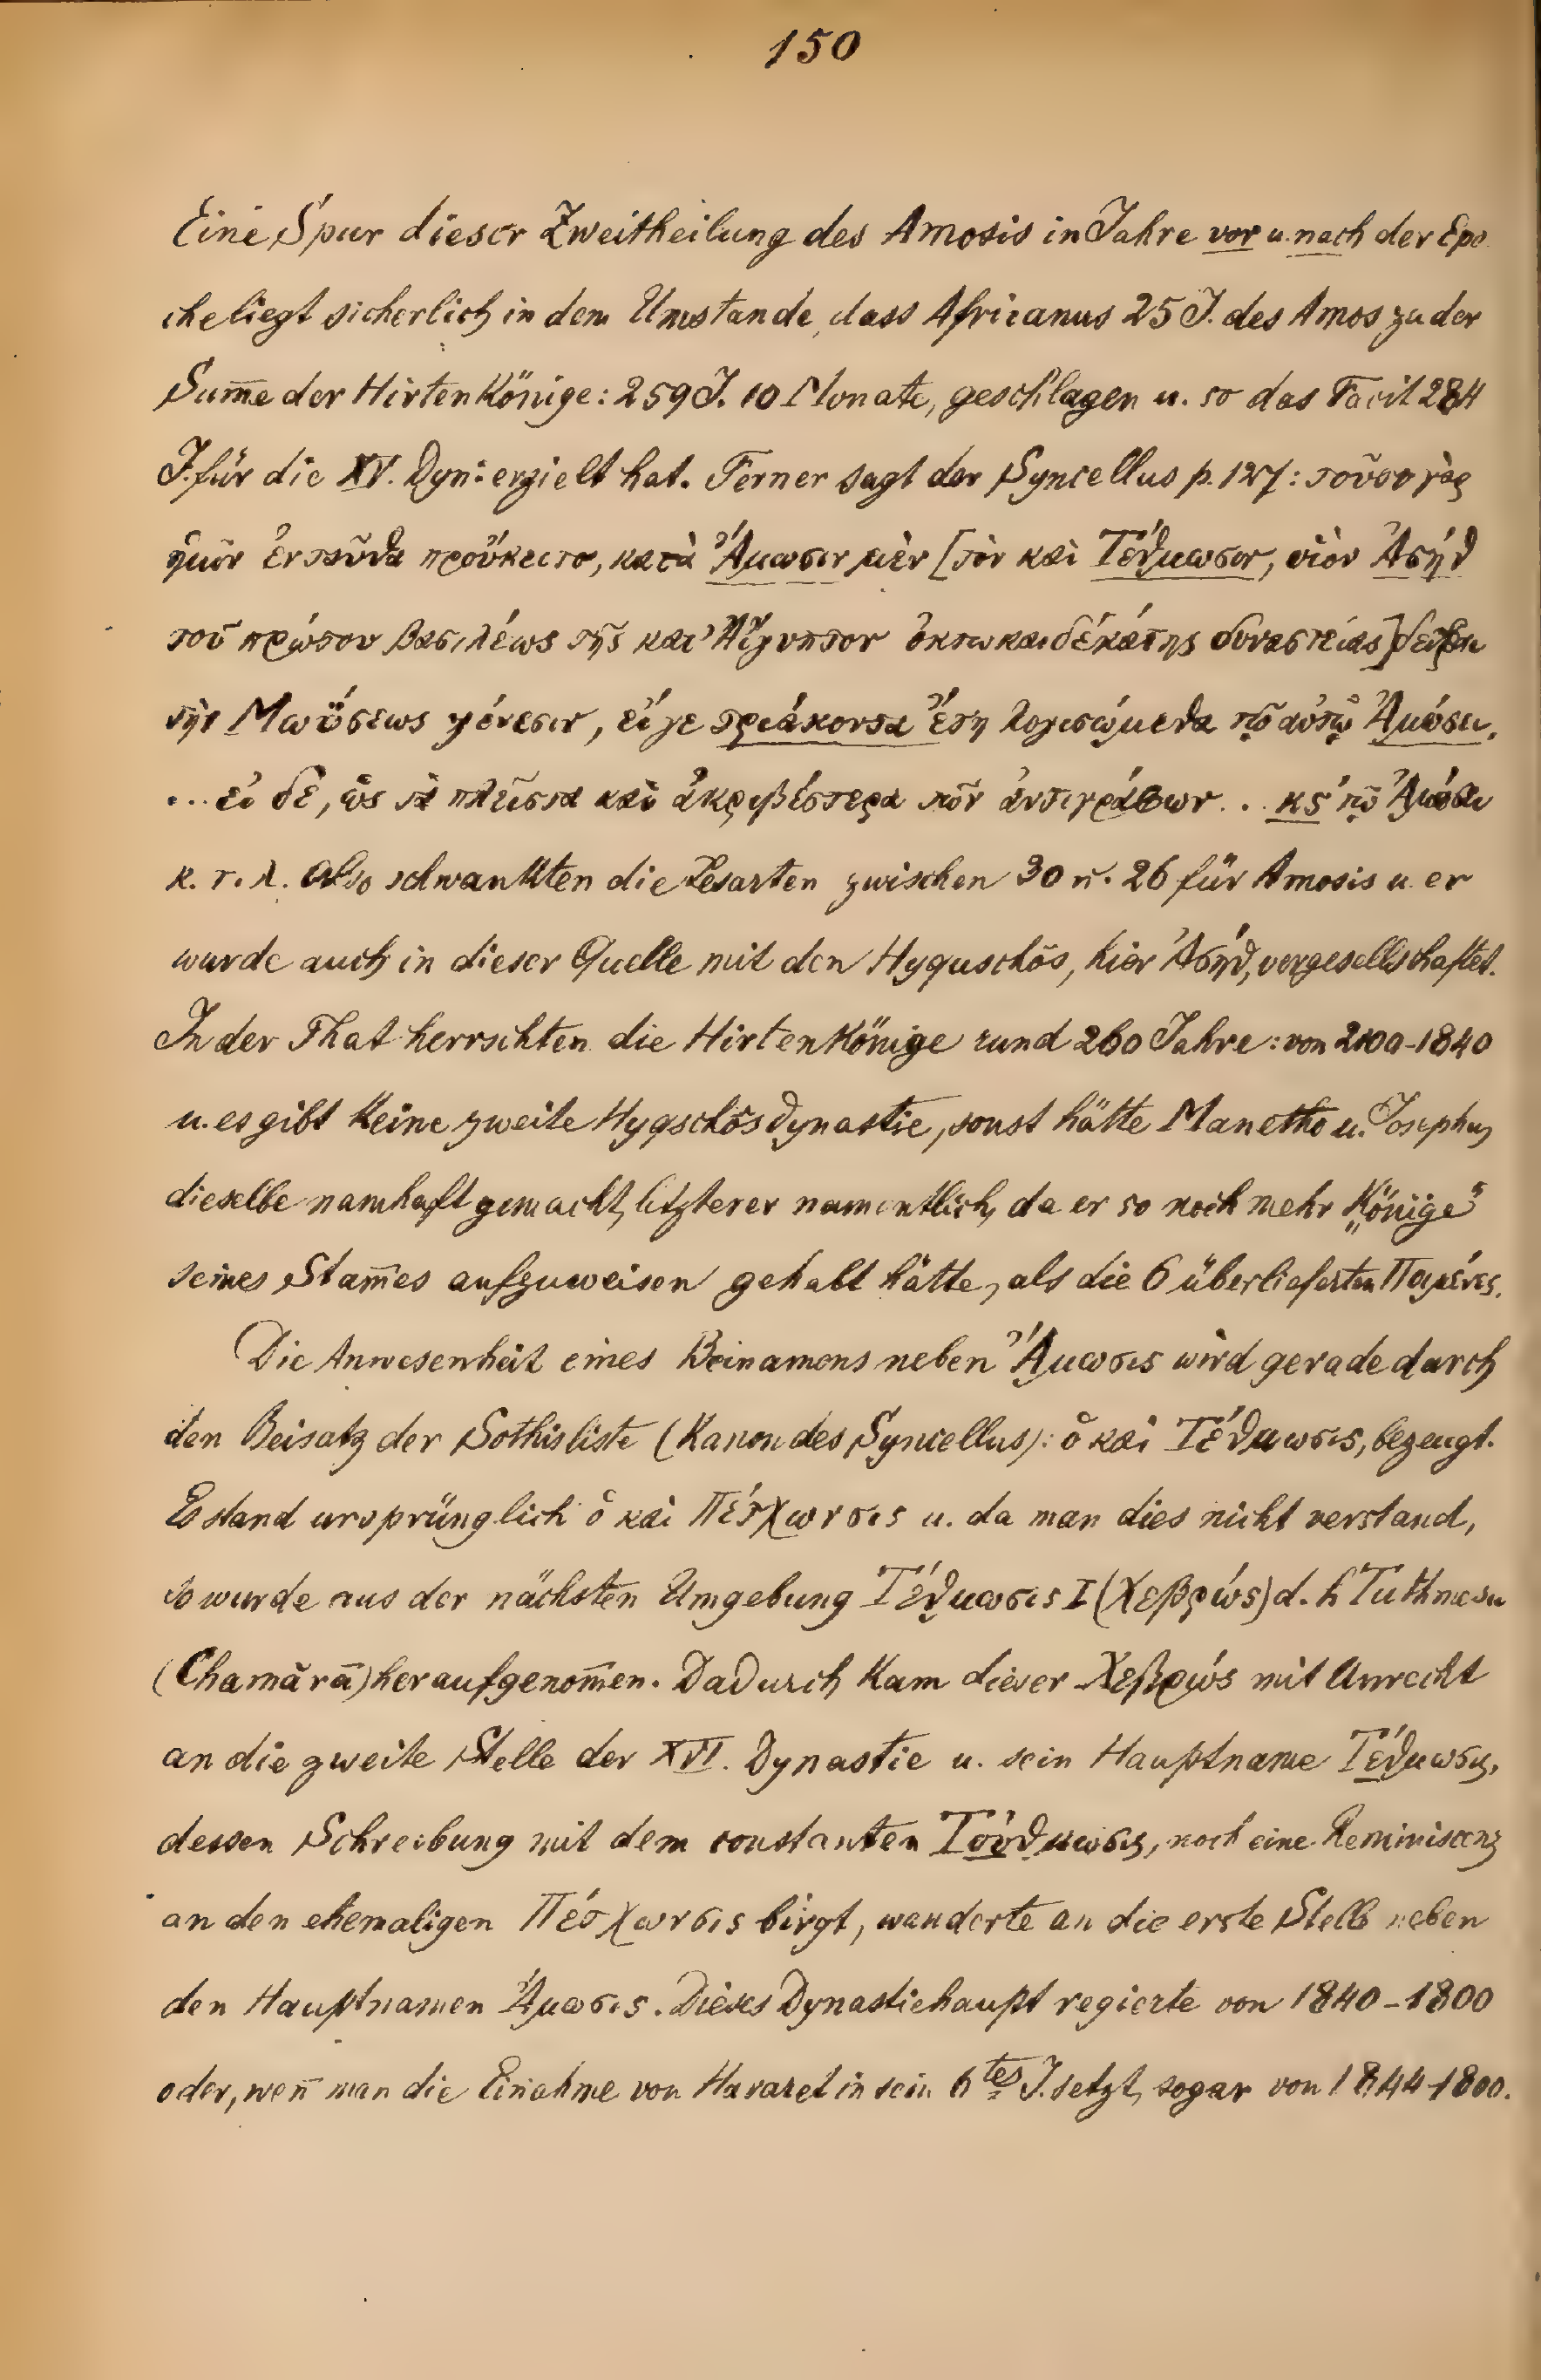 150
Eine Spur dieser Zweitheilung des Amosis in Jahre vor u. nach der Epo
che liegt sicherlich in dem Umstande, dass Africanus 25 J. des Amos zu der
Sum̄e der Hirtenkönige: 259 J. 10 Monate, geschlagen u. so das Facit 284
J. für die XV. Dyn: erzielt hat. Ferner sagt der Syncellus p. 127: τοῦτο γὰρ
ἡμῖν ἐνταῦθα προὔκειτο, κατὰ Ἄμωσιν μὲν [τὸν καὶ Τέθμωσιν, υἱὸν Ἀσήθ
τοῦ πρώτου βασιλέως τῆς κατ' Αἴγυπτον ὀκτωκαιδεκάτης δυναστείας] δεῖξαι
τὴν Μωϋσέως γένεσιν, εἴ γε τριάκοντα ἔτη λογισώμεθα τῷ αὐτῷ Ἀμώσει,
... εἰ δὲ, ὡς τὰ πλεῖστα καὶ ἀκριβέστερα τῶν ἀντιγράφων .. κϛ' τῷ Ἀμώσει
κ. τ. λ. Also schwankten die Lesarten zwischen 30 u. 26 für Amosis u. er
wurde auch in dieser Quelle mit den Hyquschôs, hier Ἀσήθ, vergesellschaftet.
In der That herrschten die Hirtenkönige rund 260 Jahre: von 2100-1840
u. es gibt keine zweite Hyqschôsdynastie, sonst hätte Manetho u. Josephus
dieselbe namhaft gemacht, letzterer namentlich, da er so noch mehr „Könige"
seines Stam̄es aufzuweisen gehabt hätte, als die 6 überlieferten Ποιμένες.
Die Anwesenheit eines Beinamens neben Ἄμωσις wird gerade durch
den Beisatz der Sothisliste (Kanon des Syncellus): ὁ καὶ Τέθμωσις, bezeugt.
Es stand ursprünglich ὁ καὶ Πέσχωνσις u. da man dies nicht verstand,
so wurde aus der nächsten Umgebung Τέθμωσις I (Χεβρώς) d. h Tuthmesu
(Chamărā) heraufgenom̄en. Dadurch kam dieser Χεβρώς mit Unrecht
an die zweite Stelle der XVI. Dynastie u. sein Hauptname Τέθμωσις,
dessen Schreibung mit dem constanten Τούθμωσις, noch eine Reminiscenz
an den ehemaligen Πέσχωνσις birgt, wanderte an die erste Stelle neben
den Hauptnamen Ἄμωσις. Dieses Dynastiehaupt regierte von 1840-1800
oder, wen̄ man die Einahme von Havaret in sein 6tes J. setzt, sogar von 1844-1800.